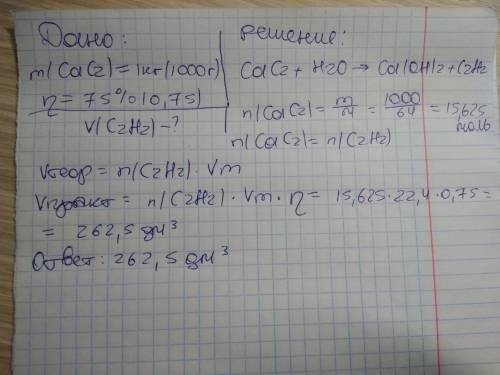 Дано:
m(CaC2) = 1кг (1000г)
η = 75% (0,75)
V(C2H2) - ?
Решение:
CaC2 + H2O → Ca(OH)2 + C2H2
n(CaC2) = m/M = 1000/64 = 15,625 моль
n(CaC2) = n(C2H2)
Vтеор = n(C2H2) · Vm
Vпракт = n(C2H2) · Vm · η = 15,625 · 22,4 · 0,75 =
= 262,5 дм³
Ответ: 262,5 дм³